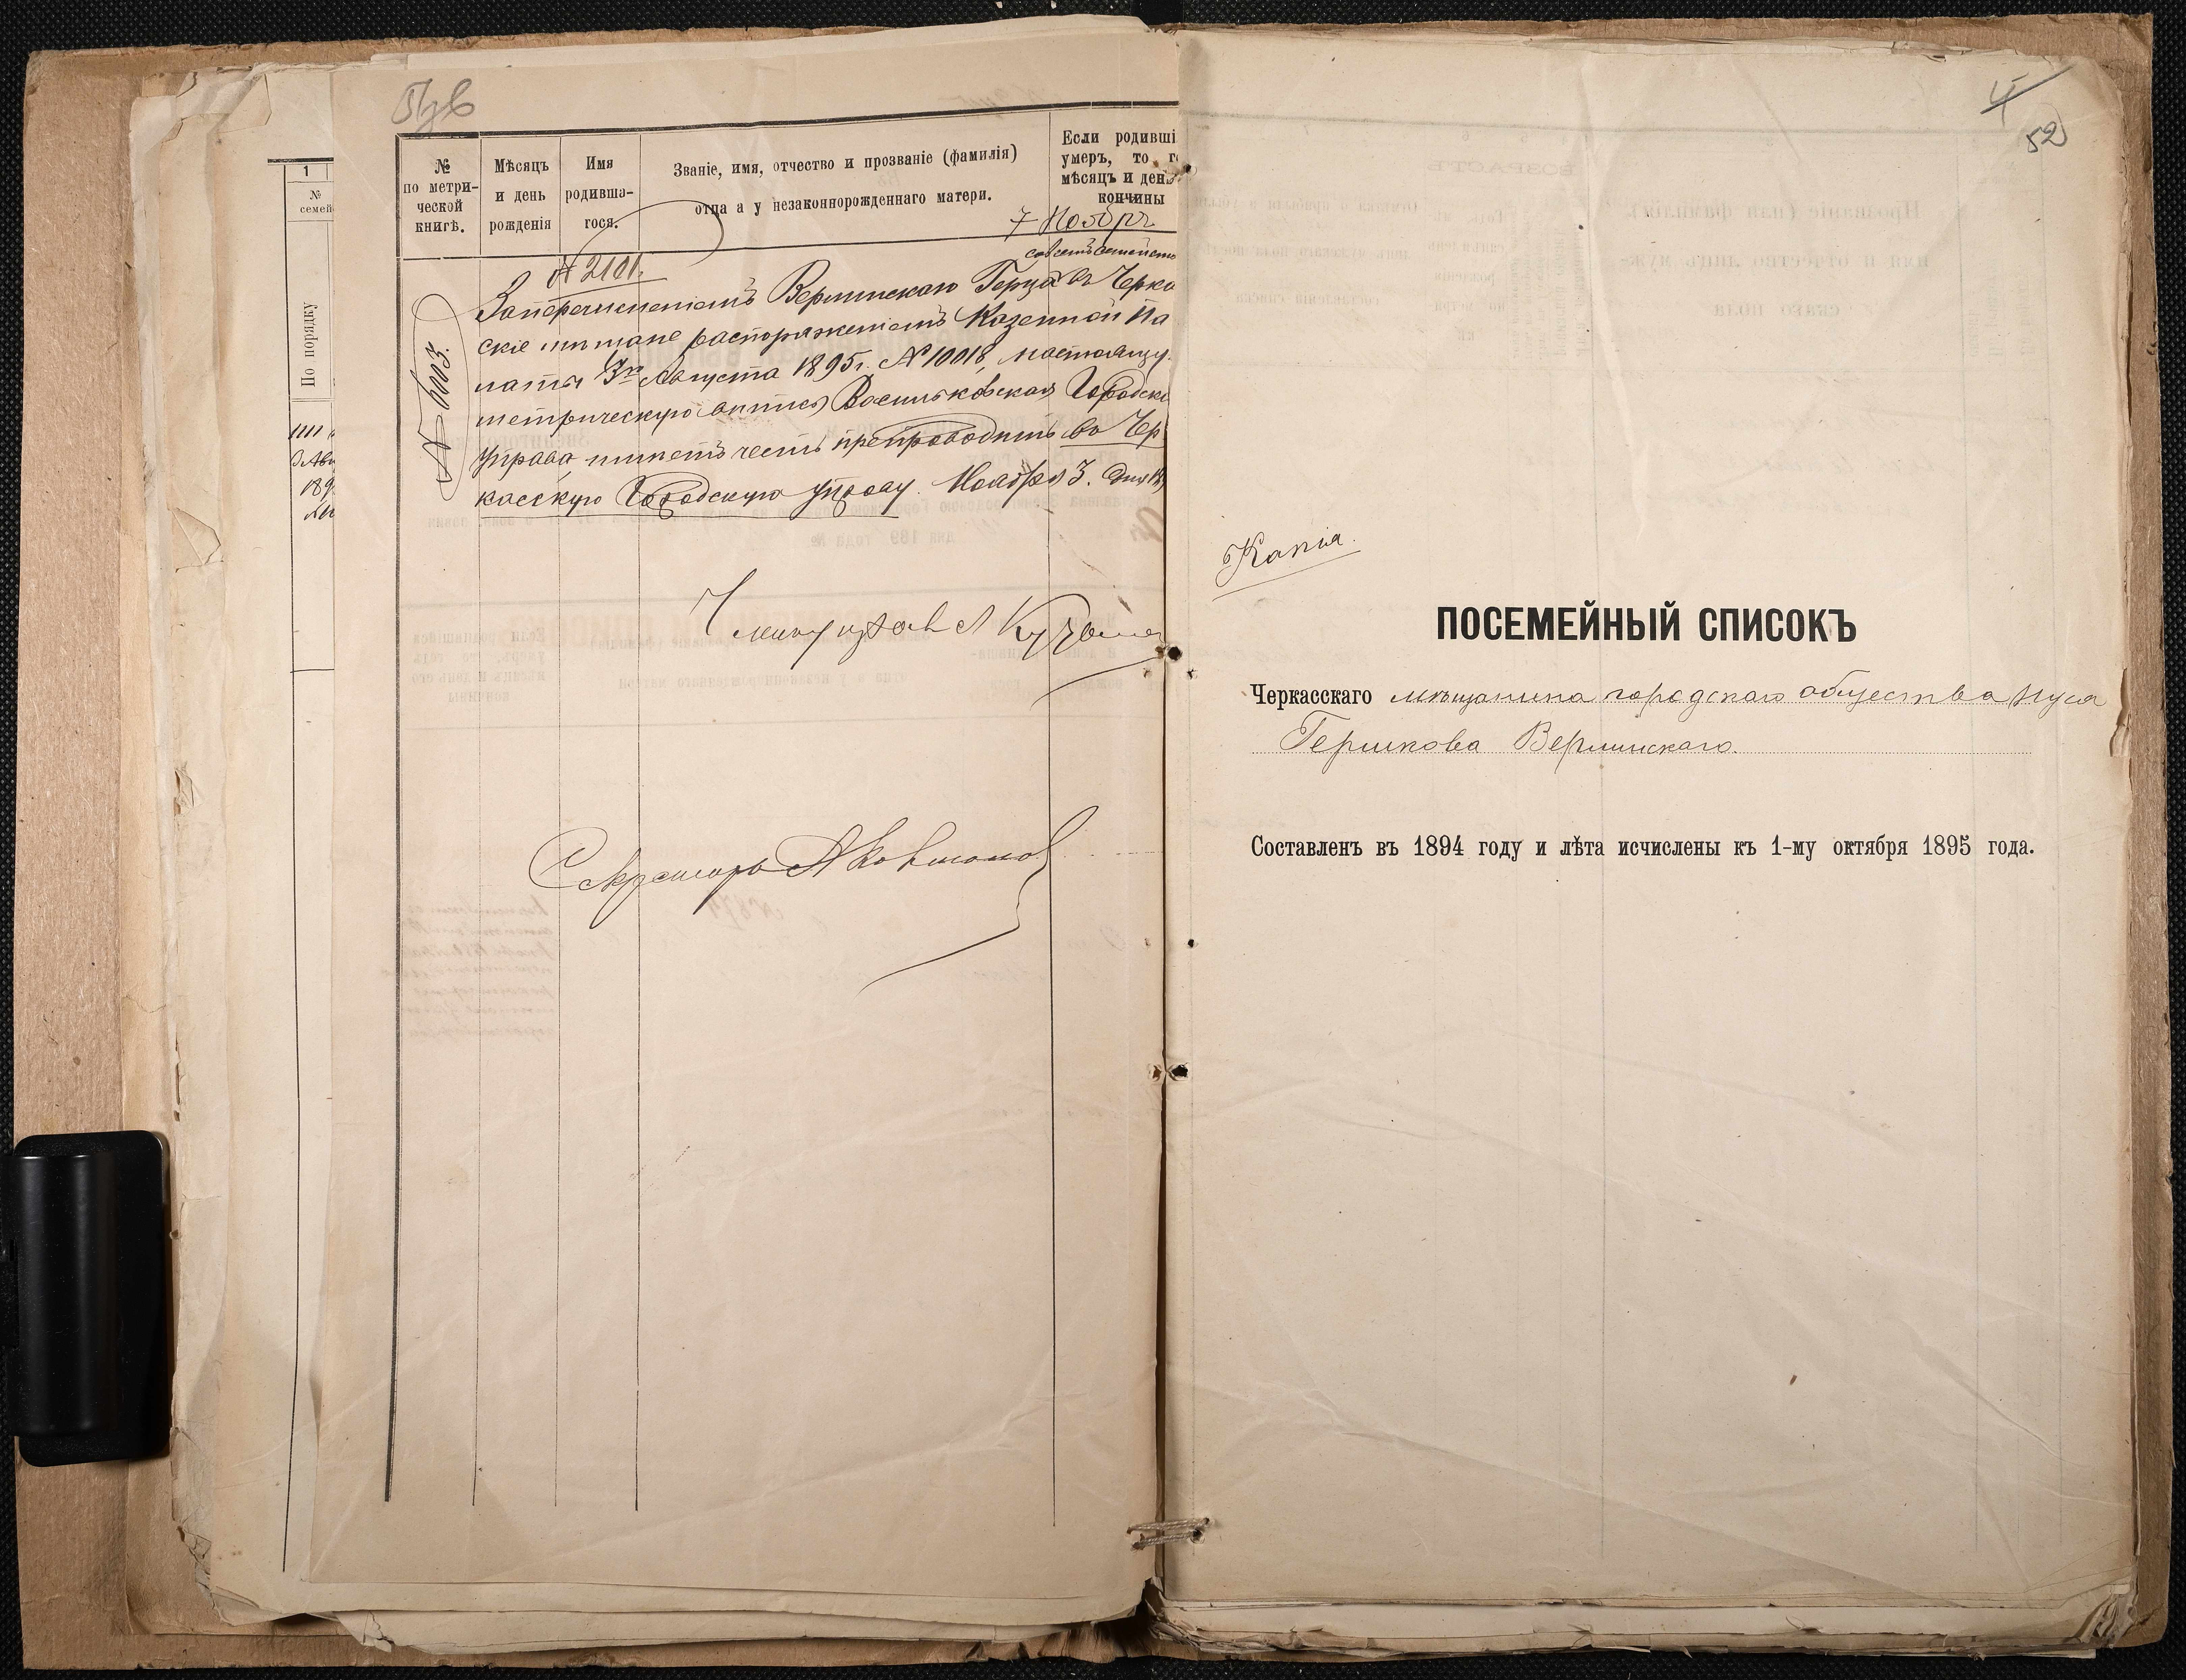 1
№
семей
По порядку
1111
189
№
по метри-
ческой
книгѣ.
Мѣсяцъ
и день
рожденія
Имя
родивша-
гося.
Званіе, имя, отчество и прозваніе (фамилія)
отца а у незаконнорожденнаго матери.
Если родившi
умеръ, то г
мѣсяцъ и ден
кончины
7 Ноябр
№ 2101.
№ 5003.
За перечисленіемъ Верлинскаго Герца въ Черка
скіе мѣщане распоряженіемъ Казенной Па
латы 3го Августа 1895г. № 10018, настоящу
метрическую выпись Васильковская Городск
Управа имѣетъ честь препроводить въ Чер
касскую Городскую управу. Ноября 3. дня
Секретарь
52
Копія.
ПОСЕМЕЙНЫЙ СПИСОКЪ
Черкасскаго мѣщанина городскаго общества Нуся
Гершкова Верлинскаго.
Составленъ въ 1894 году и лѣта исчислены къ 1-му октября 1895 года.